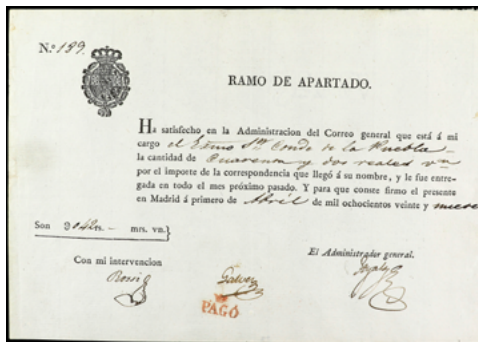 N.º 199.
RAMO DE APARTADO.
Ha satisfecho en la Administracion del Correo general que está á mi
cargo el Exmo Sor Conde de la Puebla
la cantidad de Quarenta y dos reales vn
por el importe de la correspondencia que llegó á su nombre, y le fue entre-
gada en todo el mes próximo pasado. Y para que conste firmo el presente
en Madrid á primero de Abril de mil ochocientos veinte y nueve
Son 042 mrs. vn.}
El Administrador general.
Con mi intervencion
PAGÓ